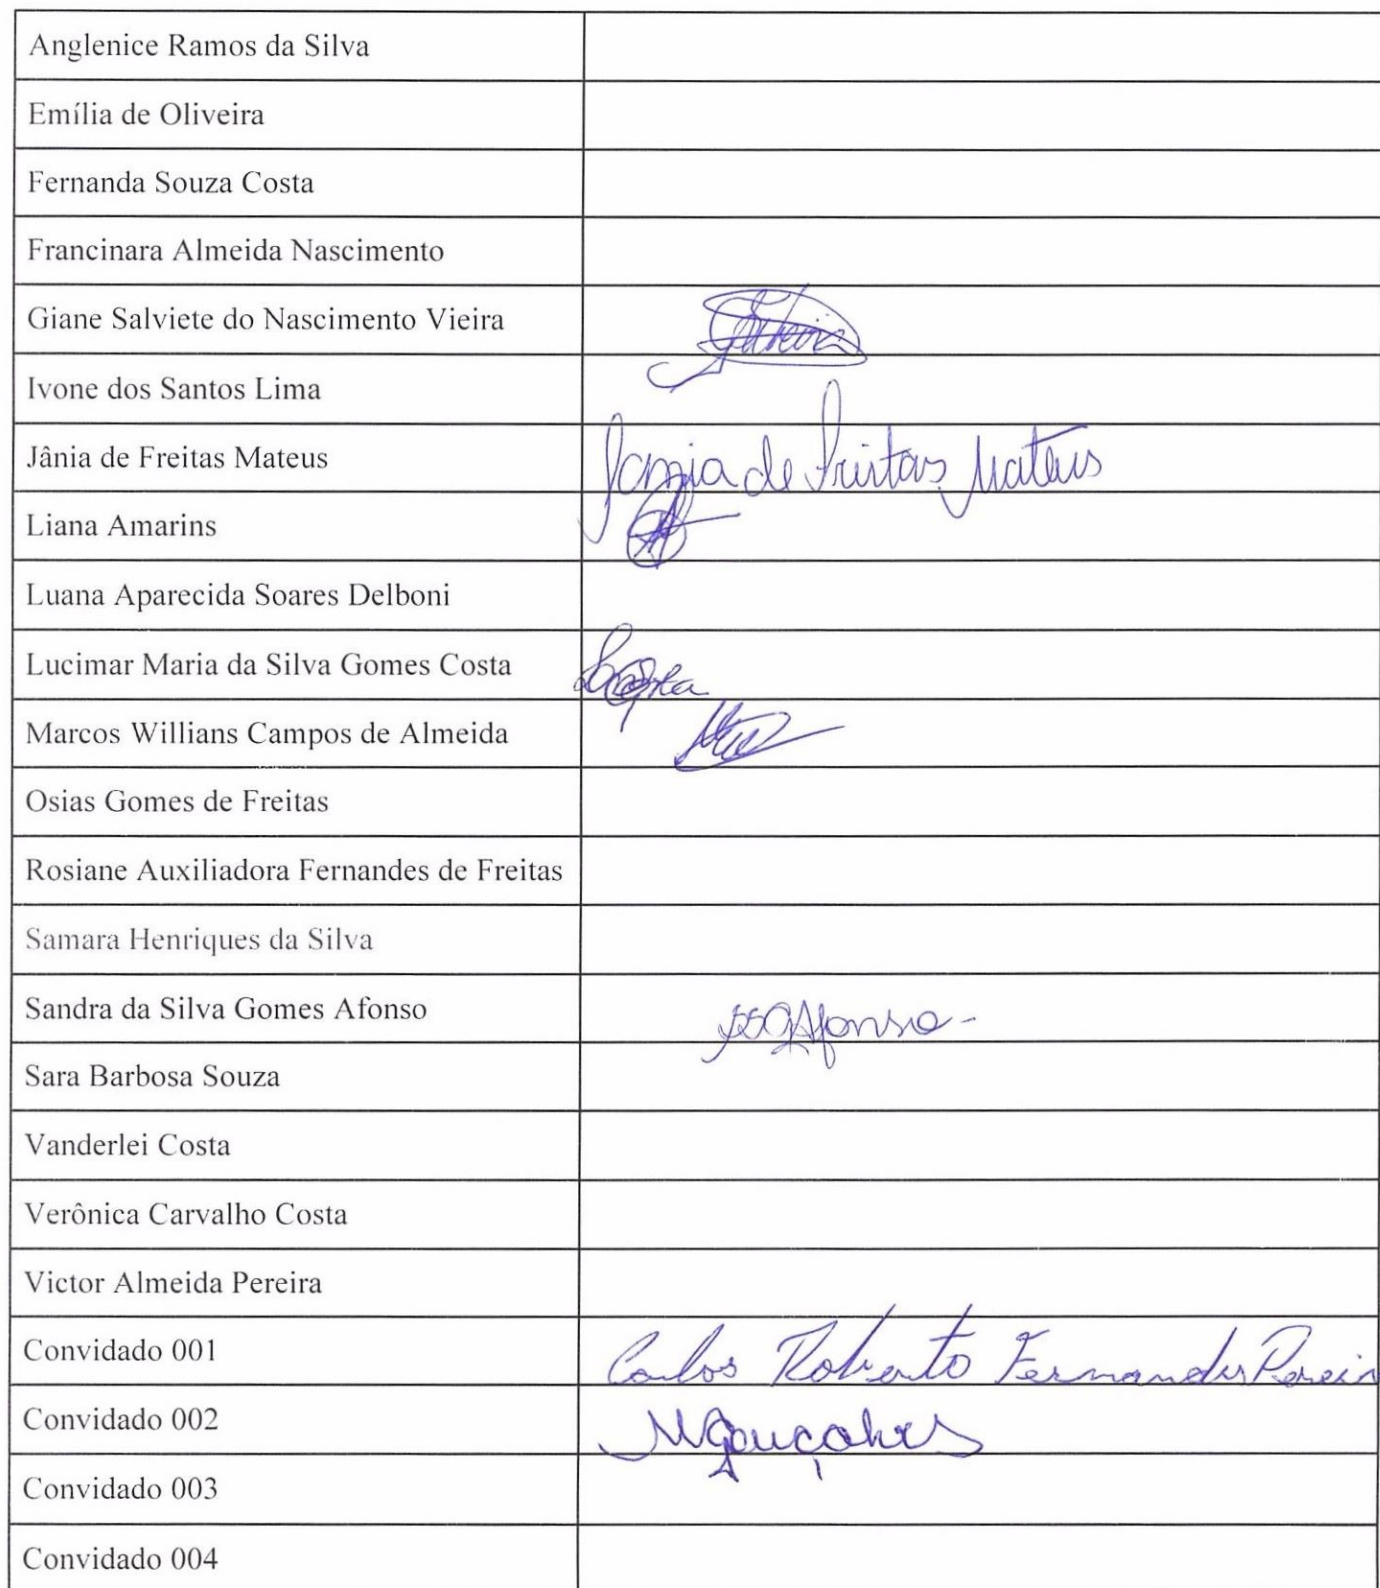 Anglenice Ramos da Silva
Emília de Oliveira
Fernanda Souza Costa
Francinara Almeida Nascimento
Giane Salviete do Nascimento Vieira
Ivone dos Santos Lima
Jânia de Freitas Mateus Jania de Freitas Mateus
Liana Amarins
Luana Aparecida Soares Delboni
Lucimar Maria da Silva Gomes Costa
Marcos Willians Campos de Almeida
Osias Gomes de Freitas
Rosiane Auxiliadora Fernandes de Freitas
Samara Henriques da Silva
Sandra da Silva Gomes Afonso SSGAfonso
Sara Barbosa Souza
Vanderlei Costa
Verônica Carvalho Costa
Victor Almeida Pereira
Convidado 001 Carlos Roberto Fernandes Pereir
Convidado 002 MGonçalves
Convidado 003
Convidado 004